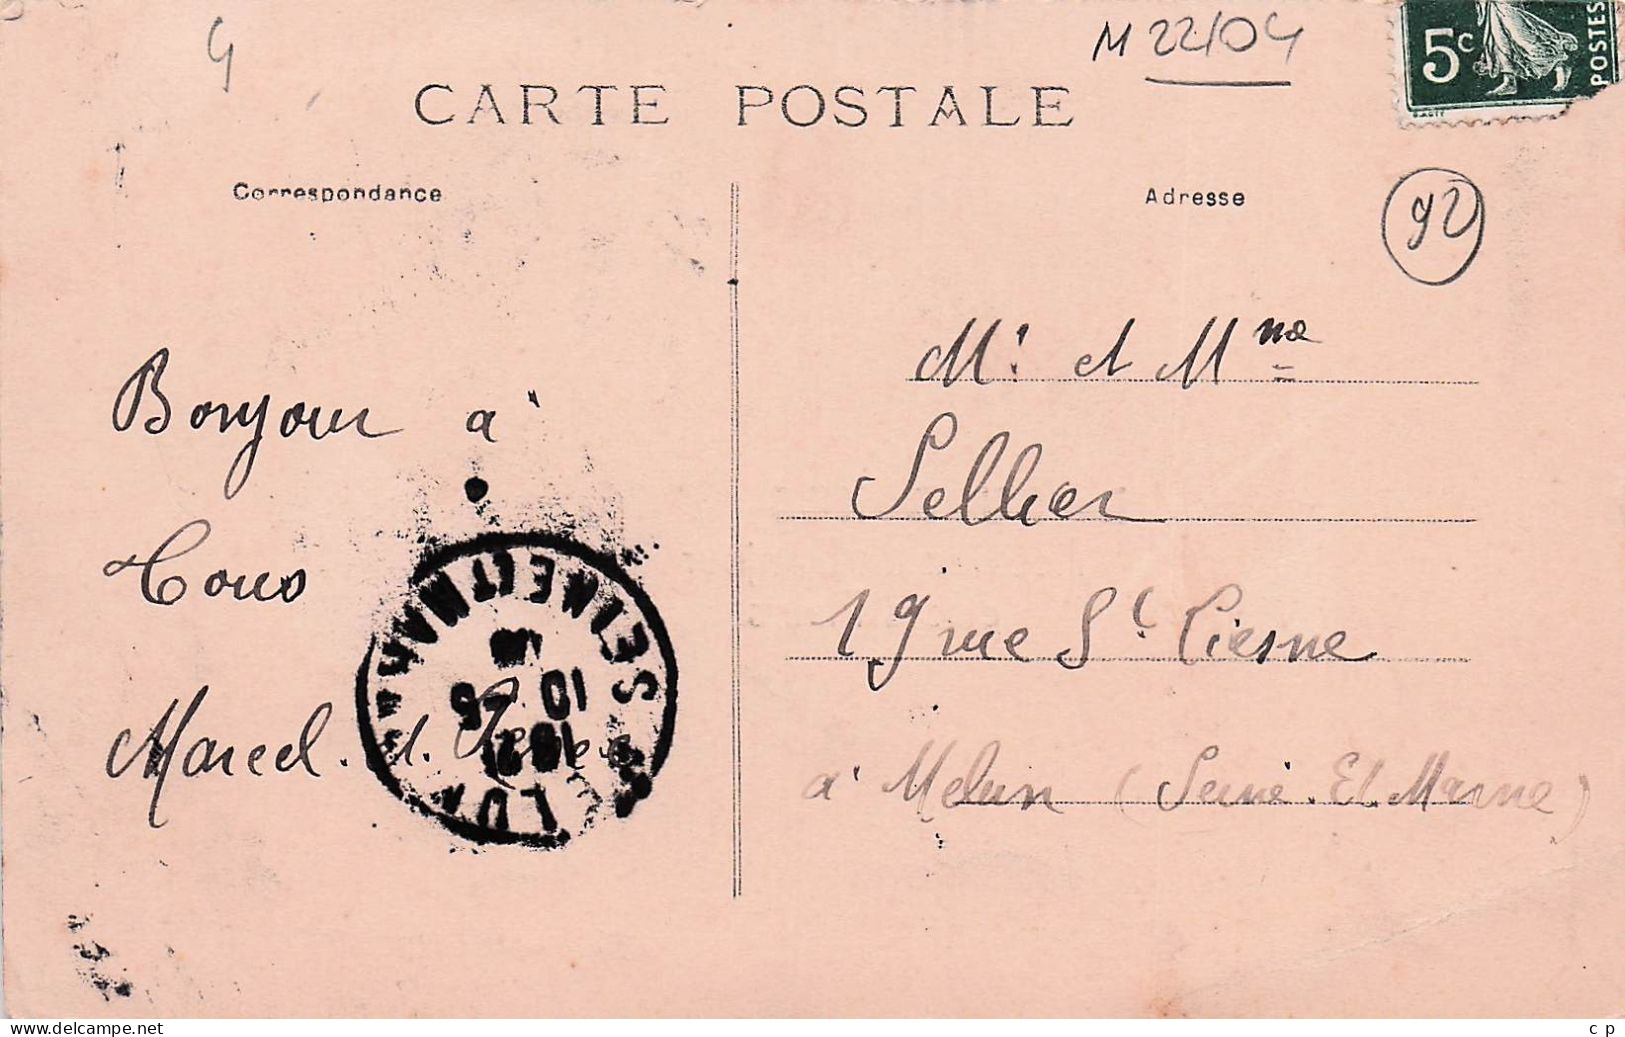 4
M 22/04
5c
POSTES
CARTE POSTALE
Correspondance
Adresse
92
Bonjour à
Tous
Marcel. et
Mr et Mme
Sellier
19 rue St
à Melun (Seine. Et. Marne)
SEINE ET MARNE
10
www.delcampe.net
c p